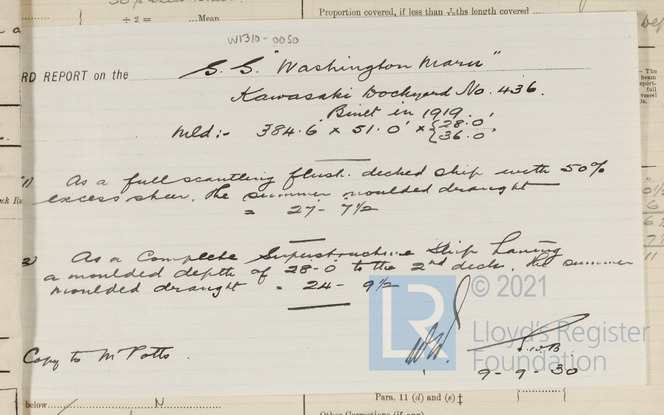 ÷ 2 =
Mean
Proportion covered, if less than ⁷⁄₁₀ths length covered
W1310-0050
RD REPORT on the S.S. "Washington Maru"
Kawasaki Dockyard No. 436.
Built in 1919.
Mld:- 384.6' x 51.0' x {28.0'
36.0'
1) As a full scantling flush decked ship with 50%
excess sheer, the summer moulded draught
= 27- 7½
2) As a Complete Superstructure Ship having
a moulded depth of 28-0 to the 2nd deck, the summer
moulded draught = 24 - 9½
LR
© 2021
Lloyd's Register
Foundation
9-9-30
Copy to Mr Potts.
below
N
Para. 11 (d) and (e) ‡
Other Corrections (if any)